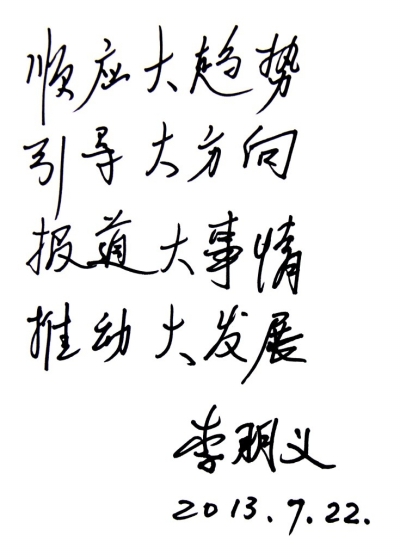 顺应大趋势
引导大方向
报道大事情
推动大发展
李朋义
2013.7.22.